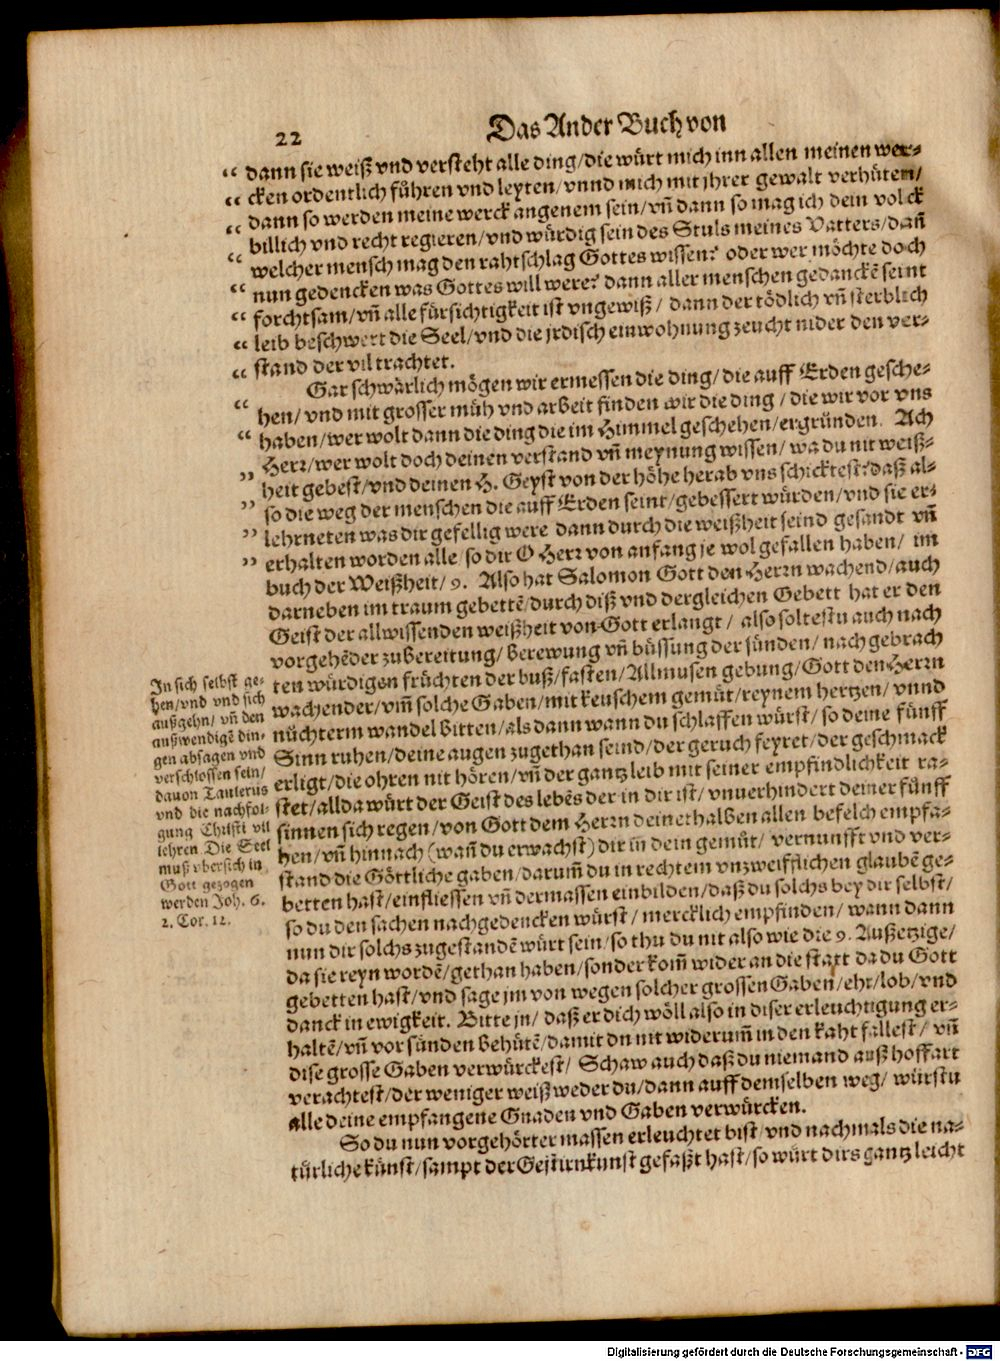 22 Das Ander Buch von
“ dann sie weiß vnd versteht alle ding/die würt mich inn allen meinen wer-
“ cken ordentlich führen vnd leyten/vnnd mich mit jhrer gewalt verhüten/
“ dann so werden meine werck angenem sein/vñ dann so mag ich dein volck
“ billich vnd recht regieren/vnd würdig sein des Stuls meines Vatters/dañ
“ welcher mensch mag den rahtschlag Gottes wissen? oder wer möchte doch
“ nun gedencken was Gottes will were? dann aller menschen gedanckẽ seint
“ forchtsam/vñ alle fürsichtigkeit ist vngewiß/ dann der tödlich vñ sterblich
“ leib beschwert die Seel/vnd die jrdisch einwohnung zeucht nider den ver-
stand der vil trachtet.
“ Gar schwärlich mögen wir ermessen die ding/ die auff Erden gesche-
“ hen/ vnd mit grosser müh vnd arbeit finden wir die ding / die wir vor vns
haben/wer wolt dann die ding die im Himmel geschehen/ergründen. Ach
” Herr/wer wolt doch deinen verstand vñ meynung wissen/ wa du nit weiß-
” heit gebest/vnd deinen H. Geyst von der höhe herab vns schicktest? daß al-
” so die weg der menschen die auff Erden seint/gebessert würden/vnd sie er-
” lehrneten was dir gefellig were dann durch die weißheit seind gesandt vñ
erhalten worden alle/so dir O Herr von anfang je wol gefallen haben/ im
buch der Weißheit/9. Also hat Salomon Gott den Herrn wachend/auch
darneben im traum gebettẽ/durch diß vnd dergleichen Gebett hat er den
Geist der allwissenden weißheit von Gott erlangt / also soltestu auch nach
vorgehẽder zubereitung/ Berewung vñ büssung der sünden/ nach gebrach
ten würdigen früchten der buß/fasten/Allmusen gebung/Gott den Herrn
wachender/vm̃ solche Gaben/mit keuschem gemüt/reynem hertzen/ vnnd
nüchterm wandel bitten/als dann wann du schlaffen würst/ so deine fünff
Sinn ruhen/deine augen zugethan seind/der geruch feyret/der geschmack
erligt/die ohren nit hören/vñ der gantz leib mit seiner empfindlichkeit ra-
stet/allda würt der Geist des lebẽs der in dir ist/ vnuerhindert deiner fünff
sinnen sich regen/von Gott dem Herrn deinethalben allen befelch empfa-
hen/vñ hinnach (wañ du erwachst) dir in dein gemüt/ vernunfft vnd ver-
stand die Göttliche gaben/darum̃ du in rechtem vnzweifflichen glaubẽ ge-
betten hast/einfliessen vñ dermassen einbilden/daß du solchs bey dir selbst/
so du den sachen nachgedencken würst/ mercklich empfinden/ wann dann
nun dir solchs zugestandẽ würt sein/so thu du nit also wie die 9. Außetzige/
da sie reyn wordẽ/gethan haben/sonder kom̃ wider an die statt da du Gott
gebetten hast/vnd sage jm von wegen solcher grossen Gaben/ehr/lob/vnd
danck in ewigkeit. Bitte jn/ daß er dich wöll also in diser erleuchtigung er-
haltẽ/vñ vor sünden behütẽ/damit du nit widerum̃ in den kaht fallest/ vñ
dise grosse Gaben verwürckest/ Schaw auch daß du niemand auß hoffart
verachtest/der weniger weiß weder du/dann auff demselben weg/ würstu
alle deine empfangene Gnaden vnd Gaben verwürcken.
So du nun vorgehörter massen erleuchtet bist/vnd nachmals die na-
türliche künst/sampt der Gestirnkunst gefaßt hast/so würt dirs gantz leicht
In sich selbst ge-
hen/vnd vnd sich
außgehn/ vñ den
außwendigẽ din-
gen absagen vnd
verschlossen sein/
dauon Taulerus
vnd die nachfol-
gung Christi vil
lehren. Die Seel
muß vbersich in
Gott gezogen
werden Joh. 6.
2. Cor. 12.
Digitalisierung gefördert durch die Deutsche Forschungsgemeinschaft - DFG